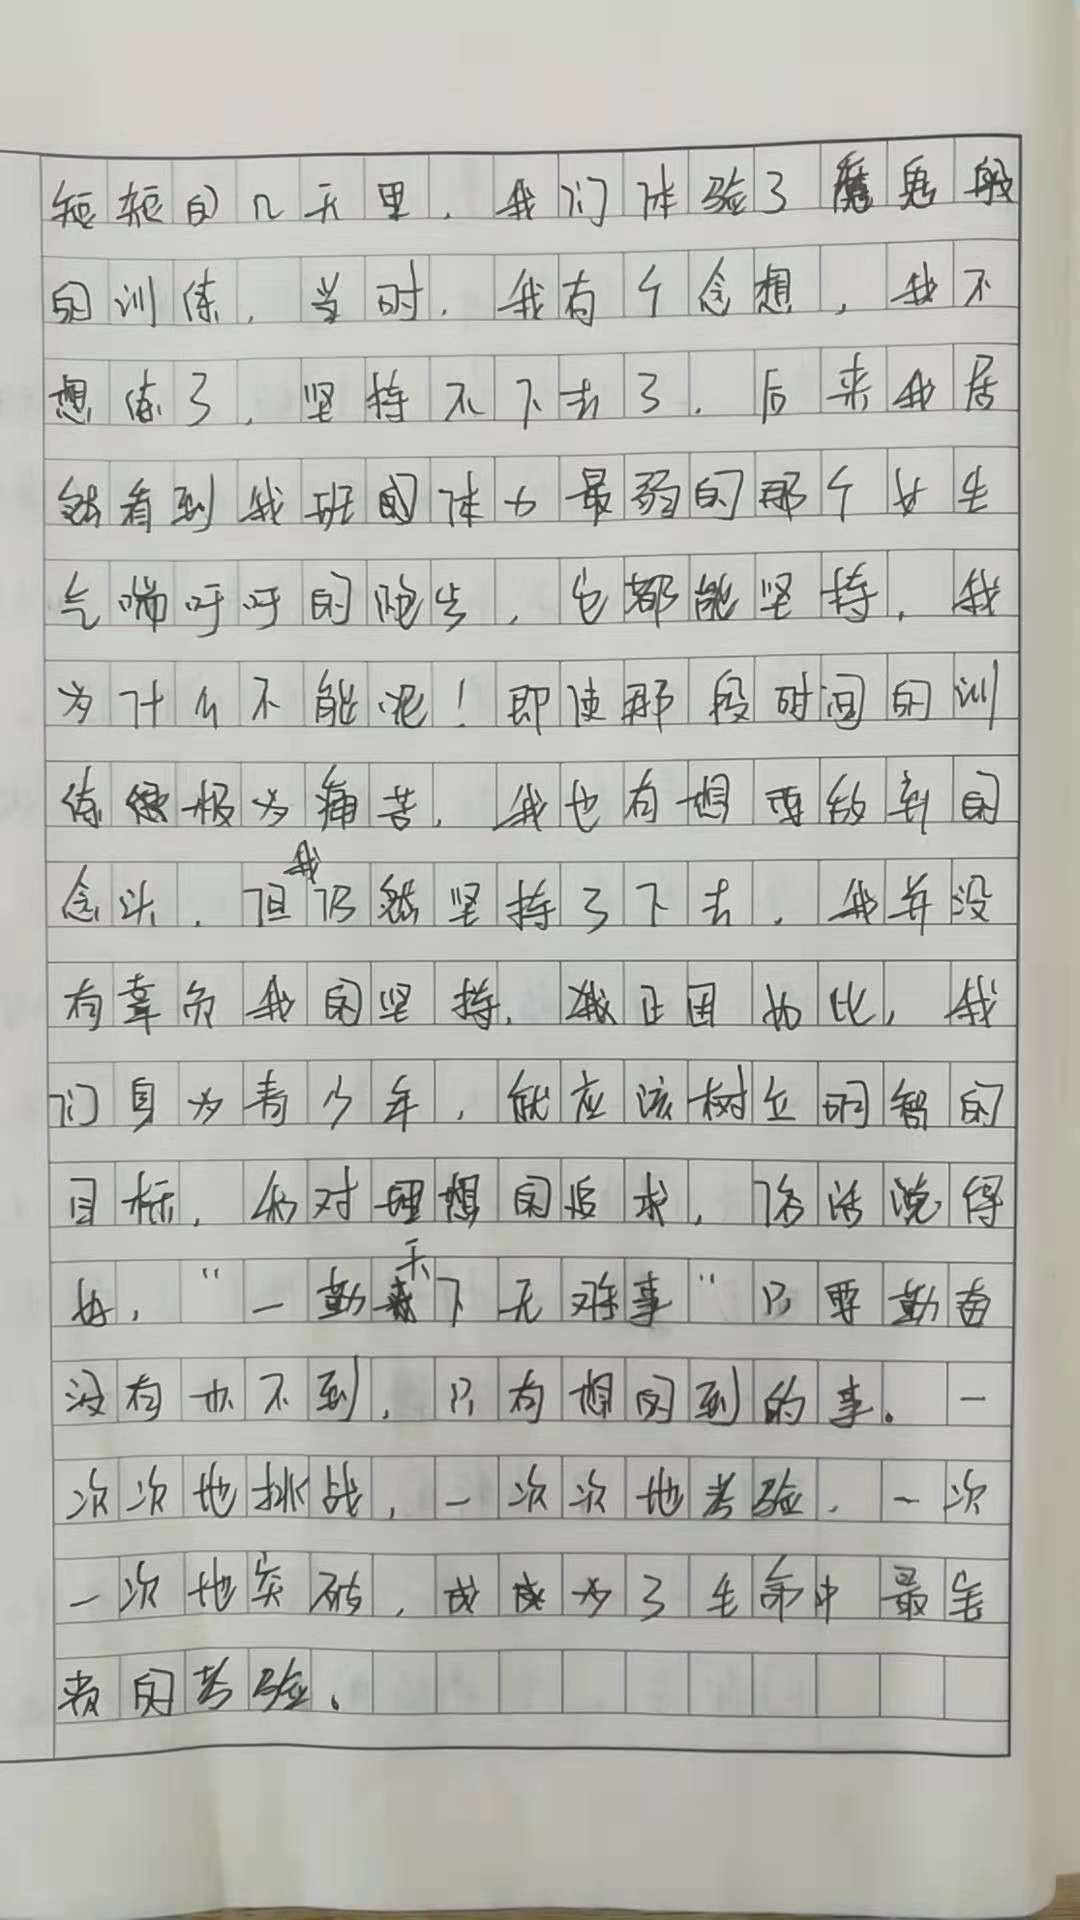 短短的几天里，我们体验了魔鬼般
的训练，当时，我有个念想，我不
想练了，坚持不下去了，后来我居
然看到我班的体力最弱的那个女生
气喘吁吁的跑步，它都能坚持，我
为什么不能呢！即使那段时间的训
练极为痛苦，我也有想要放弃的
念头，但我仍然坚持了下去，我并没
有辜负我的坚持，正因如此，我
们身为青少年，就应该树立明智的
目标，和对理想的追求，俗话说得
好，“一勤天下无难事”只要勤奋
没有办不到，只有想的到的事。一
次次地挑战，一次次地考验，一次
一次地突破，成为了生命中最宝
贵的考验。